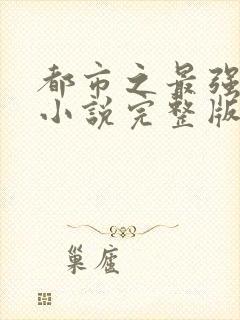 都市之最强
小说完整版
巢庭